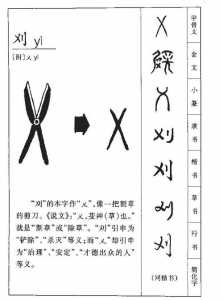 刈 yì
[附]乂 yì
“刈”的本字作“乂”，像一把割草
的剪刀。《说文》：“乂，芟艸（草）也。”
就是“割草”或“除草”。“刈”引申为
“铲除”、“杀灭”等义；而“乂”却引申
为“治理”、“安定”、“才德出众的人”
等义。
甲骨文
金文
小篆
隶书
刈
楷书
刈
草书
刈
行书
刈
（同楷书）
简化字